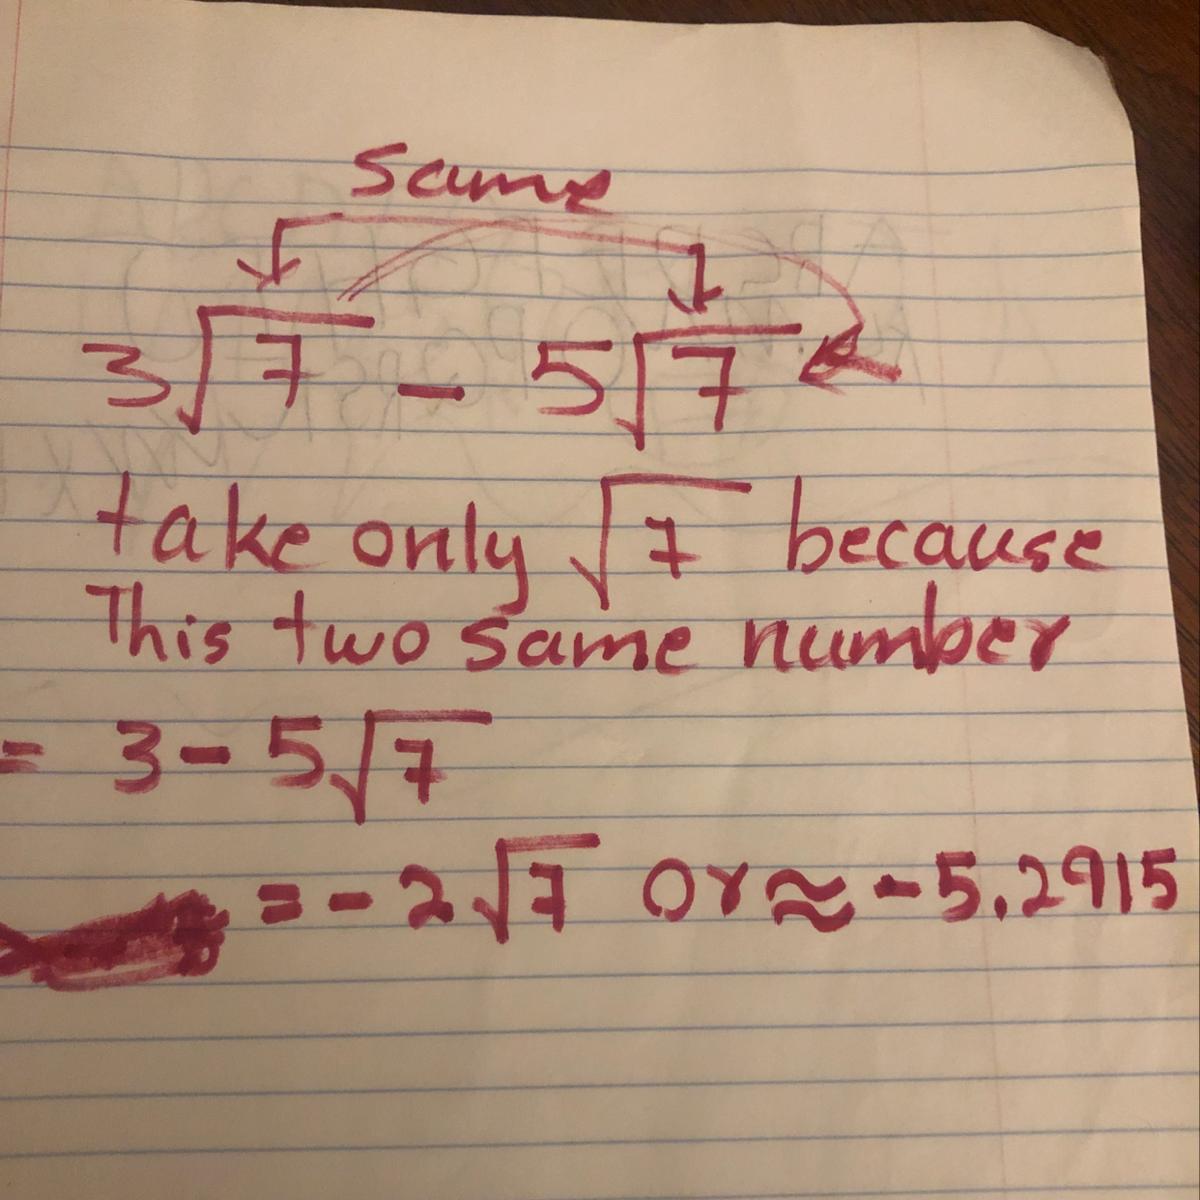 same
3√7 - 5√7
take only √7 because
This two same number
= 3 - 5√7
= - 2√7 or ≈ - 5.2915